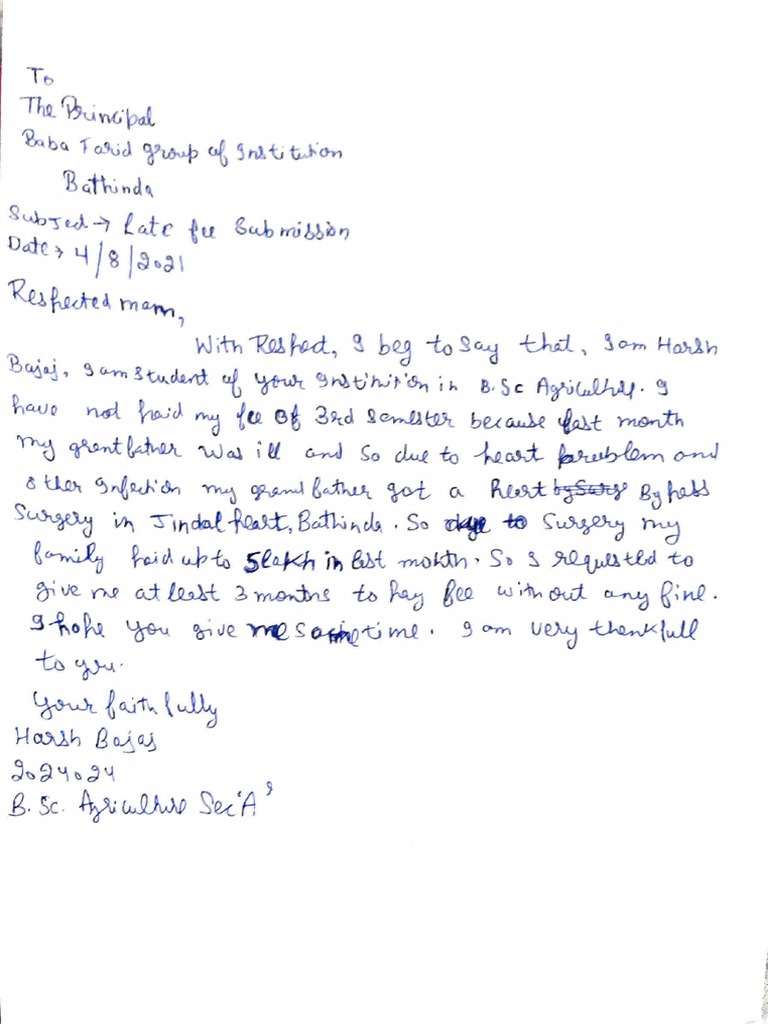 To
The Principal
Baba Farid group of Institution
Bathinda
Subject → Late fee Submission
Date → 4/8/2021
Respected mam,
With Respect, I beg to say that, I am Harsh
Bajaj, I am student of your institution in B.Sc Agriculture. I
have not paid my fee of 3rd semester because last month
my grantfather was ill and so due to heart prueblem and
other infection my grandfather got a heart bySurge Bypass
Surgery in Jindal heart, Bathinda. So due to Surgery my
family paid upto 5 lakh in last month. So I requested to
give me at least 3 months to pay fee without any fine.
I hope you give me some time. I am very thankfull
to you.
Your faithfully
Harsh Bajaj
2024024
B.Sc. Agriculture Sec 'A'